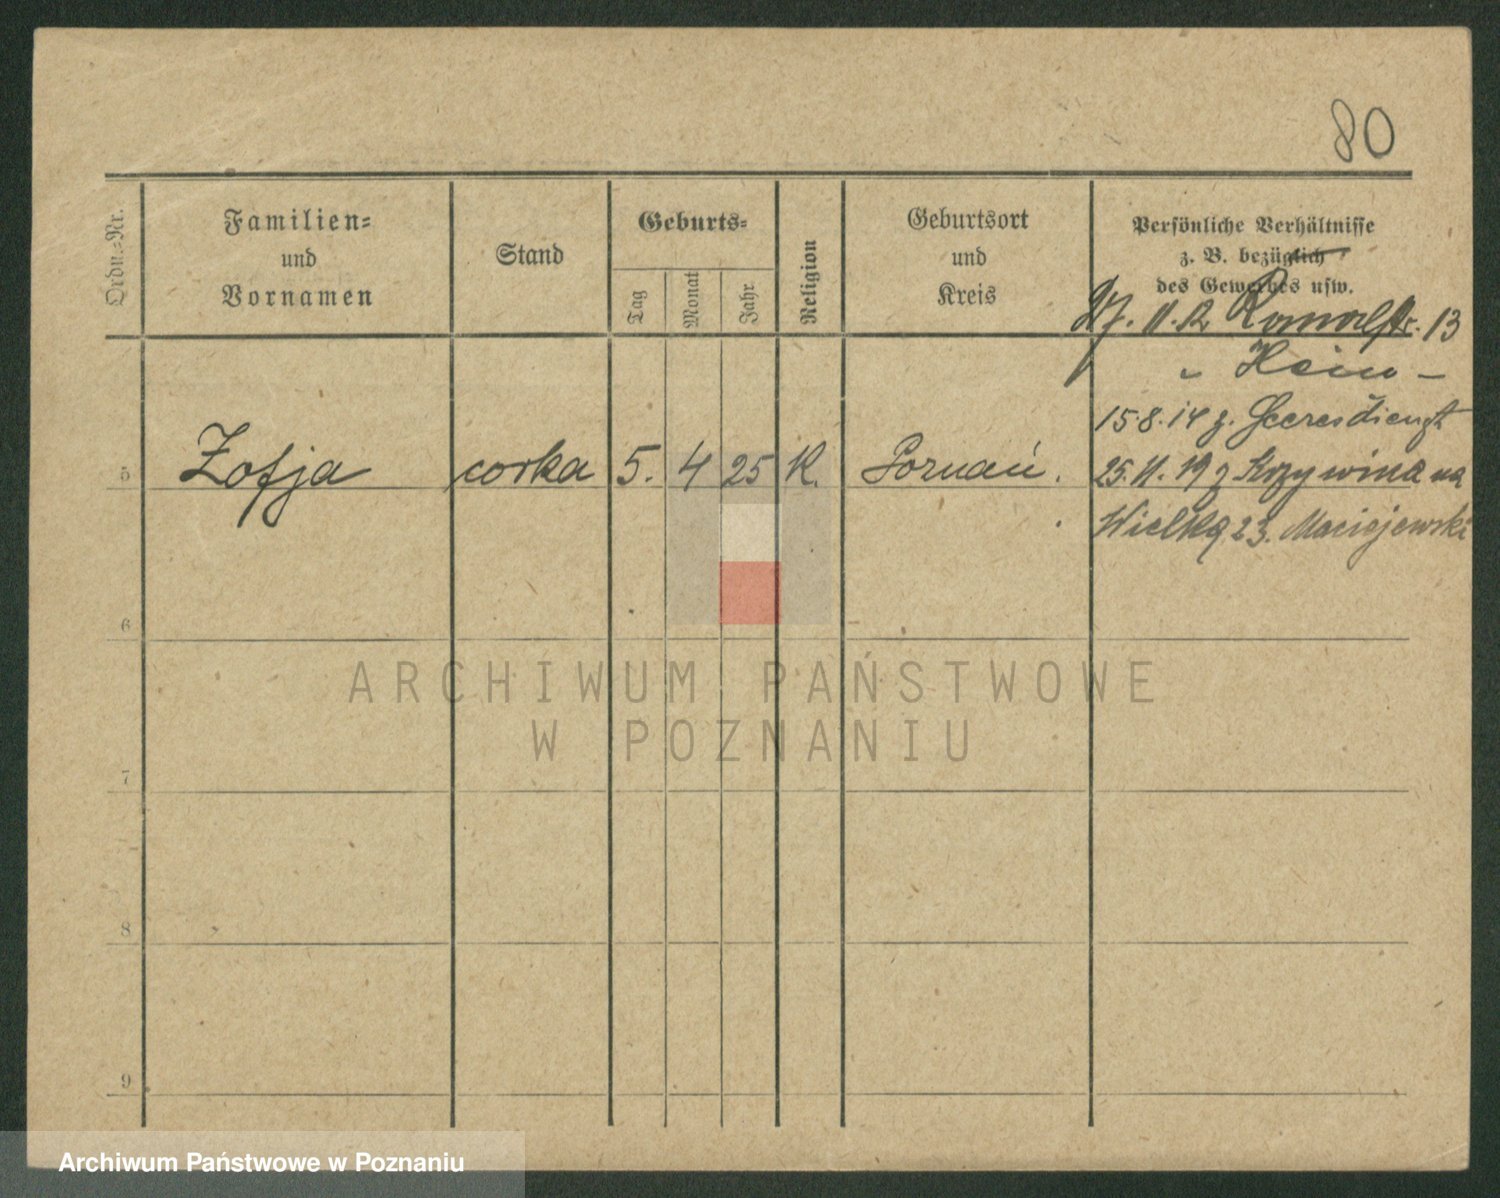 80
Ordn.=Nr.
Familien=
und
Vornamen
Stand
Geburts=
Tag
Monat
Jahr
Religion
Geburtsort
und
Kreis
Persönliche Verhältnisse
z. B. bezüglich
des Gewerbes usw.
11. 12 13
" Hein -
15.8.14 z. Heeresdienst
5 Zofja corka 5. 4 25 K. Poznań. 25.11.19 z Krzywina na
Wielką 23. Maciejewski
6
7
8
9
ARCHIWUM PAŃSTWOWE
W POZNANIU
Archiwum Państwowe w Poznaniu